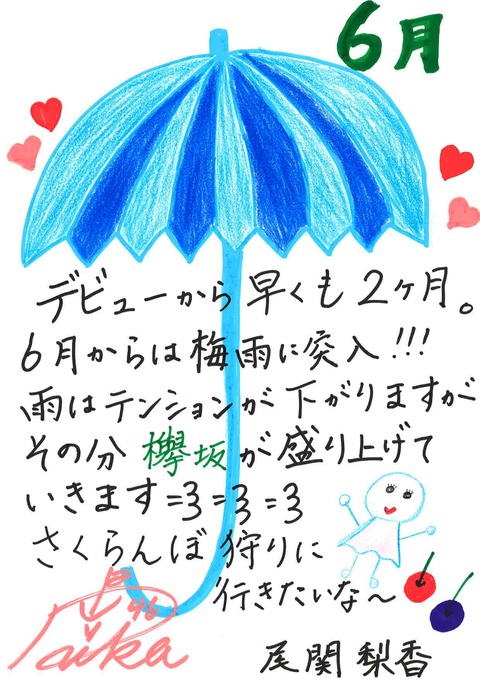 6月
デビューから早くも2ヶ月。
6月からは梅雨に突入!!!
雨はテンションが下がりますが
その分欅坂が盛り上げて
いきます=3=3=3
さくらんぼ狩りに
行きたいな〜
46
aika
尾関梨香